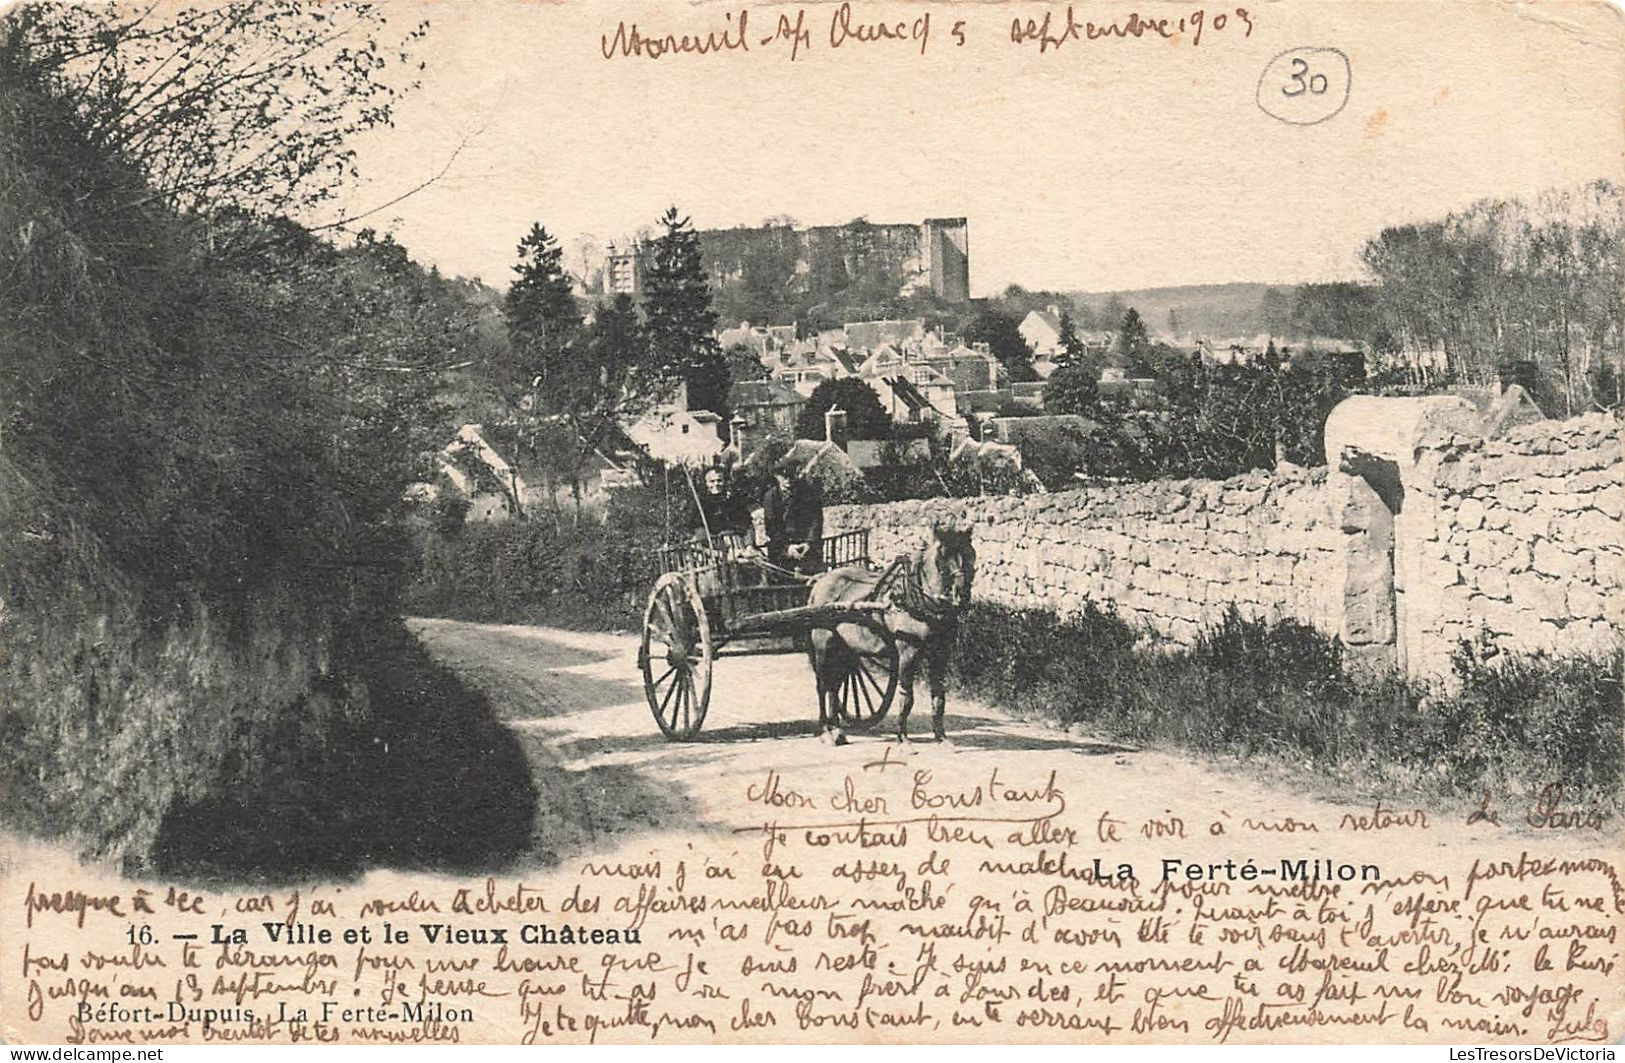 Mareuil-s/ Ourcq 5 septembre 1903
30
Mon cher Constant
Je contais bien allex te voir à mon retour de Paris
mais j'ai eu assez de malchance pour mettre mon portexmonnaie
La Ferté-Milon
presque à sec, car j'ai voulu acheter des affaires meilleur maché qu'à Beauvais. Quant à toi, j'éspère que tu ne
16. — La Ville et le Vieux Château
m'as pas trop maudit d'avoir été te voir sans t'avertir, je n'aurais
pas voulu te déranger pour une heure que je suis resté. Je suis en ce moment a Mareuil chez Mr le Curé
jusqu'au 13 septembre. Je pense que tu as vu mon frère à Lourdes, et que tu as fait un bon voyage.
Béfort-Dupuis, La Ferté-Milon
Donne moi bientôt de tes nouvelles
Je te quitte, mon cher Constant, en te serrant bien affectueusement la main. Jules
LesTresorsDeVictoria